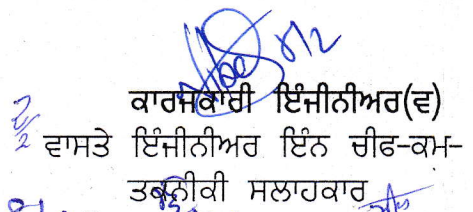 8/2
ਕਾਰਜਕਾਰੀ ਇੰਜੀਨੀਅਰ(ਵ)
ਵਾਸਤੇ ਇੰਜੀਨੀਅਰ ਇੰਨ ਚੀਫ-ਕਮ-
ਤਕਨੀਕੀ ਸਲਾਹਕਾਰ